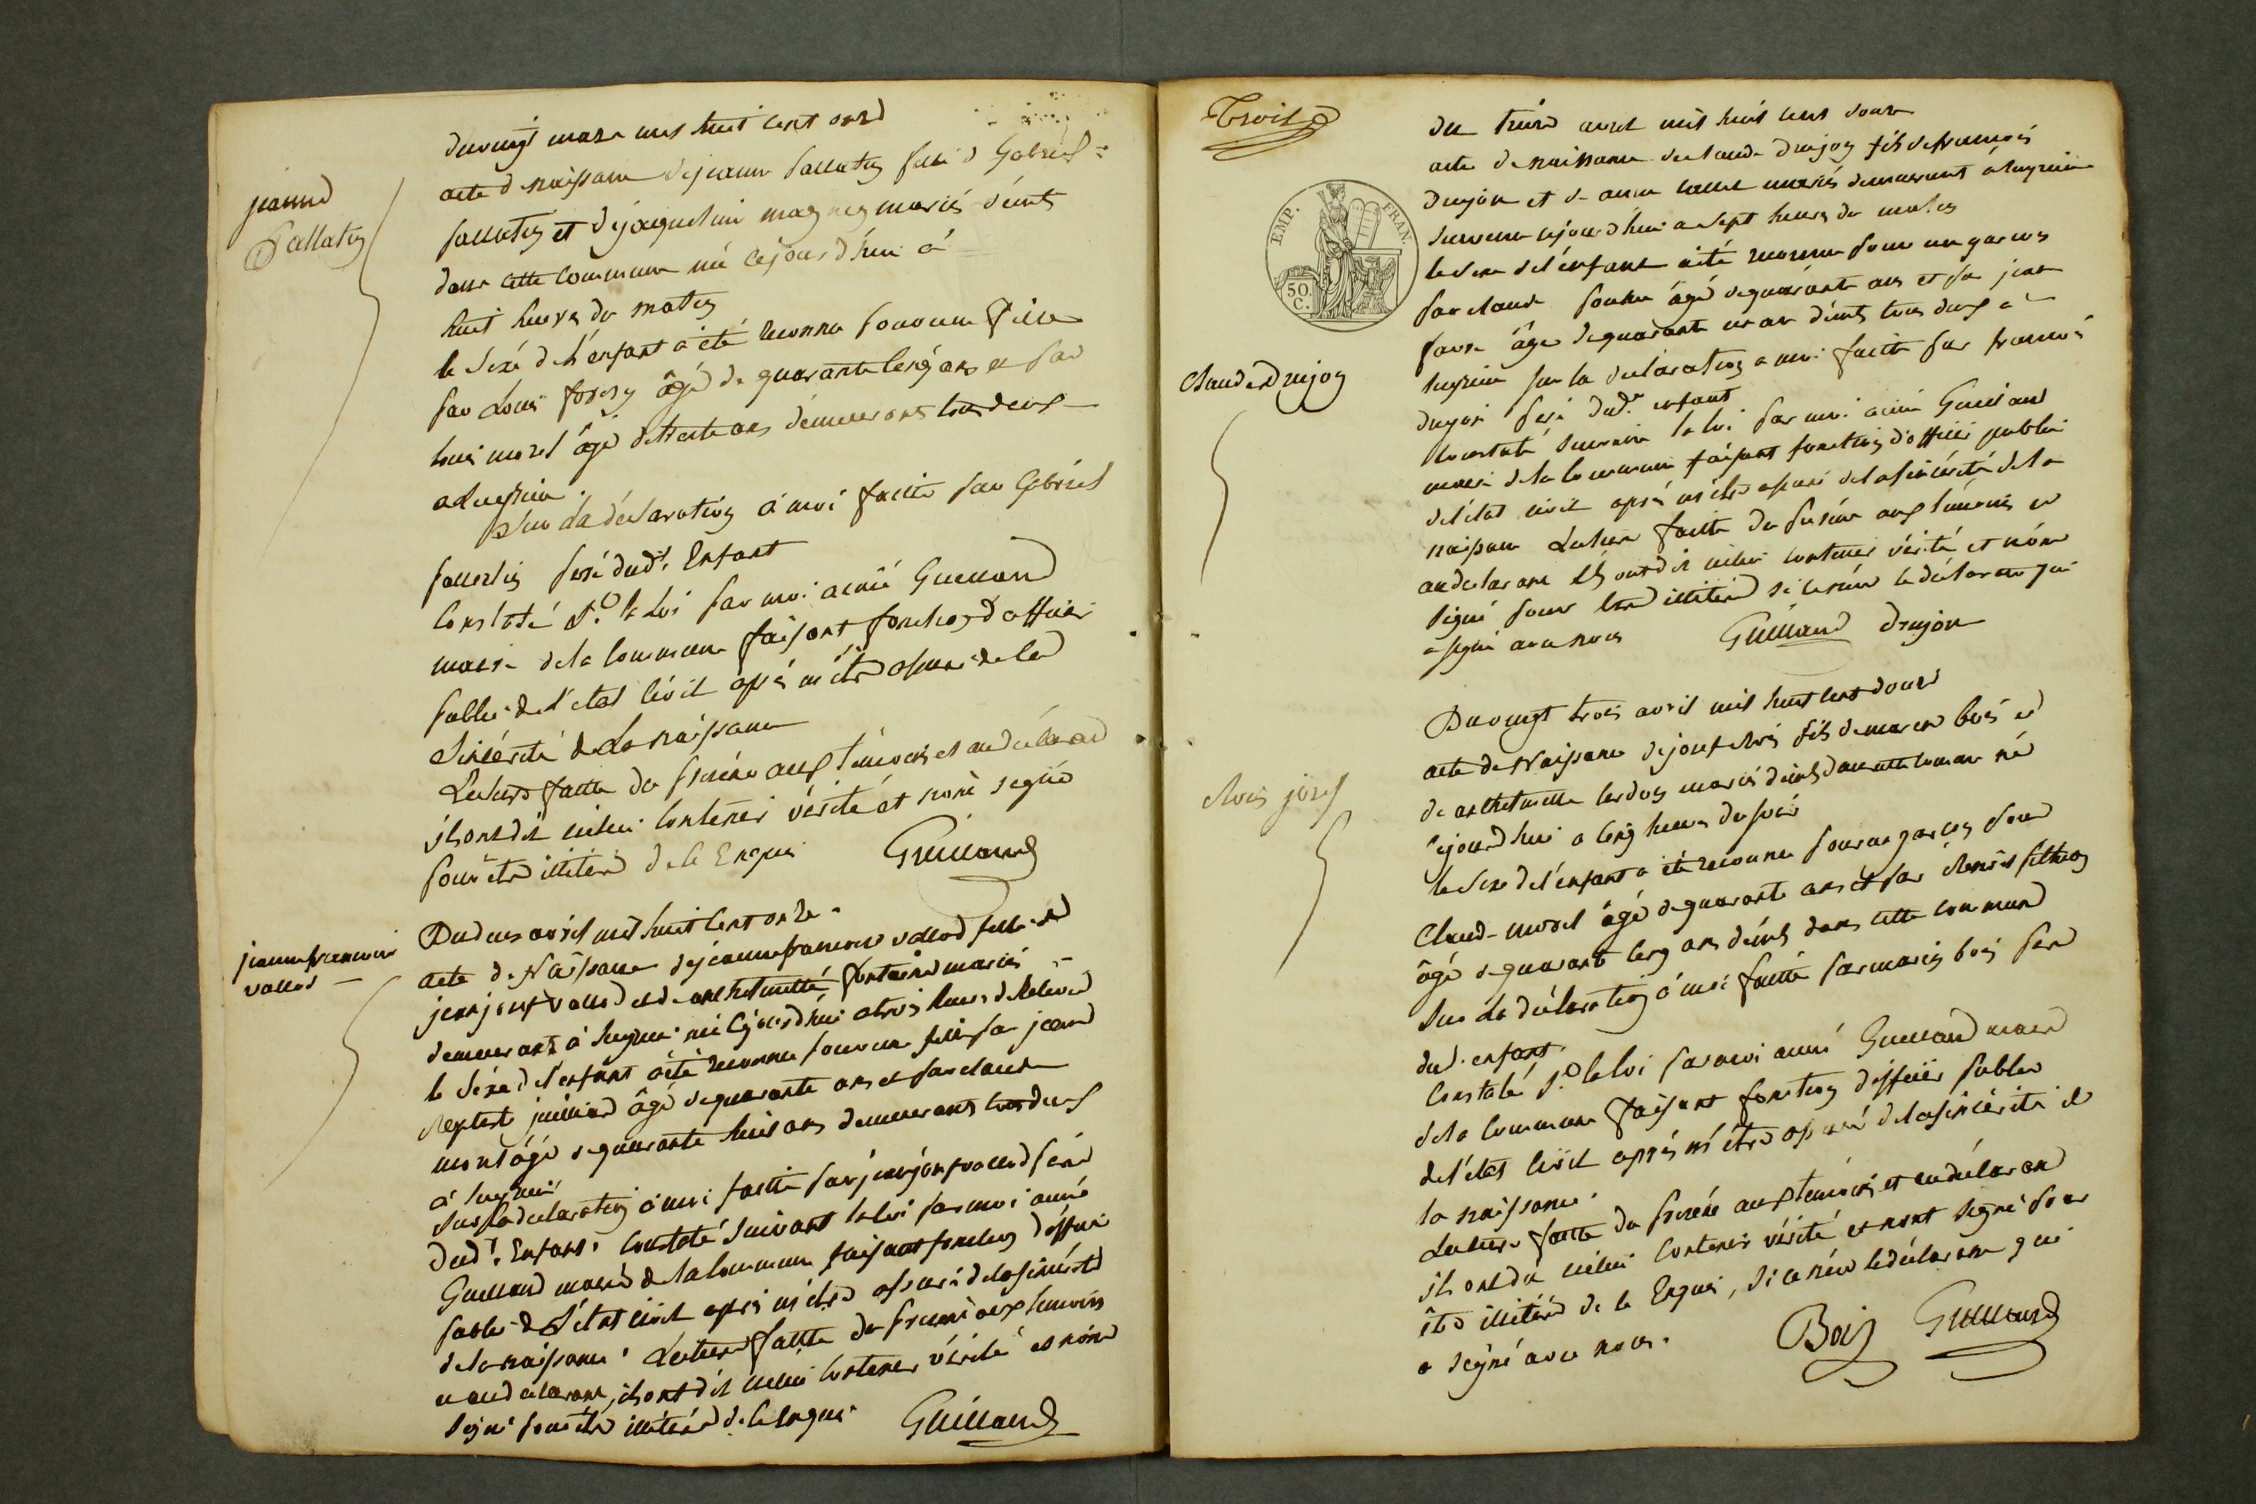 du vingt mars mil huit cent onze
jeanne
Pallatin
acte de naissance de jeanne pallatin fille de Gabriel
pallatin et de jaqueline magnin mariés
dans cette commune né cejourd'hui à
huit heures du matin
le sexe de l'enfant a été reconnu pour une fille
par Louis âgé de quarante cinq ans et par
louis morel âgé de trente ans demeurants tous deux
a
Sur la déclaration à moi faitte par Gabriel
pallatin peré dudt. Enfant
Constaté St. la loi par moi aimé Guilland
maire de la commune faisant fonction d'officier
public de l'etat civil après m'être assuré de la
sincérité de la naissance
Lecture faitte du présent aux témoins et au déclarant
ils ont dit icelui contenir vérité et non signé
pour être illitéré de ce Enquis Guilland
Du deux avril mil huit cent onze
jeanne francoise
vallod
acte de Naissance de jeanne francoise vallod fille de
jean josept vallod et de anthelmette fontaine mariés
demeurants à né cejourd'hui a trois heures de
le sexe de l'enfant a été reconnu pour une fille par jean
baptiste âgé de quarante ans et par claude
mont âgé de quarante huit ans demeurants tous deux
à
Sur la declaration à moi faitte par jean josept vallod père
dudt. Enfant. constaté suivant la loi par moi aimé
Guilland maire de la commune faisant fonction d'officier
public de l'état civil après m'être assuré de la sincérité
de la naissance. Lecture faitte du present aux temoins
et au declarant, ils ont dit icelui contenir vérité et non
signé pour être illitéré de ce enquis Guilland
Trois
EMP. FRAN.
50
C.
du treize avril mil huit cent douze
acte de naissance de claude drujon fils de francois
drujon et de anne mariés demeurants à
survenu cejourd'hui a sept heures du matin
le sexe de l'enfant a été reconnu pour un garcon
par claude âgé de quarante ans et par jean
âgé de quarante un an tous deux à
Claude Drujon
sur la declaration a moi faitte par francois
drujon peré dudt. enfant
constaté suivant la loi par moi aimé Guilland
maire de la commune faisant fonction d'officier public
de l'état civil après m'être assuré de la sincérité de la
naissance Lecture faitte du présent aux témoins et
au declarant ils ont dit icelui contenir vérité et non
signé pour être illitéré si ce n'est le déclarant qui
a signé avec nous Guilland drujon
Du vingt trois avril mil huit cent douze
Bois josef
acte de Naissance de josept Bois fils de marin bois et
de anthelmette mariés dans cette commune né
cejourd'hui a cinq heures du soir
le sexe de l'enfant a été reconnu pour un garcon par
Claude morel âgé de quarante ans et par
âgé de quarante cinq ans dans cette commune
Sur la déclaration à moi faitte par marin bois peré
dudt. enfant.
Constaté St. la loi par moi aimé Guilland maire
de la commune faisant fonction d'officier public
de l'état civil après m'être assuré de la sincérité de
la naissance.
Lecture faitte du présent aux témoins et au déclarant
ils ont dit icelui contenir vérité et n'ont signé pour
être illitéré de ce Enquis, si ce n'est le déclarant qui
a signé avec nous. Bois Guilland